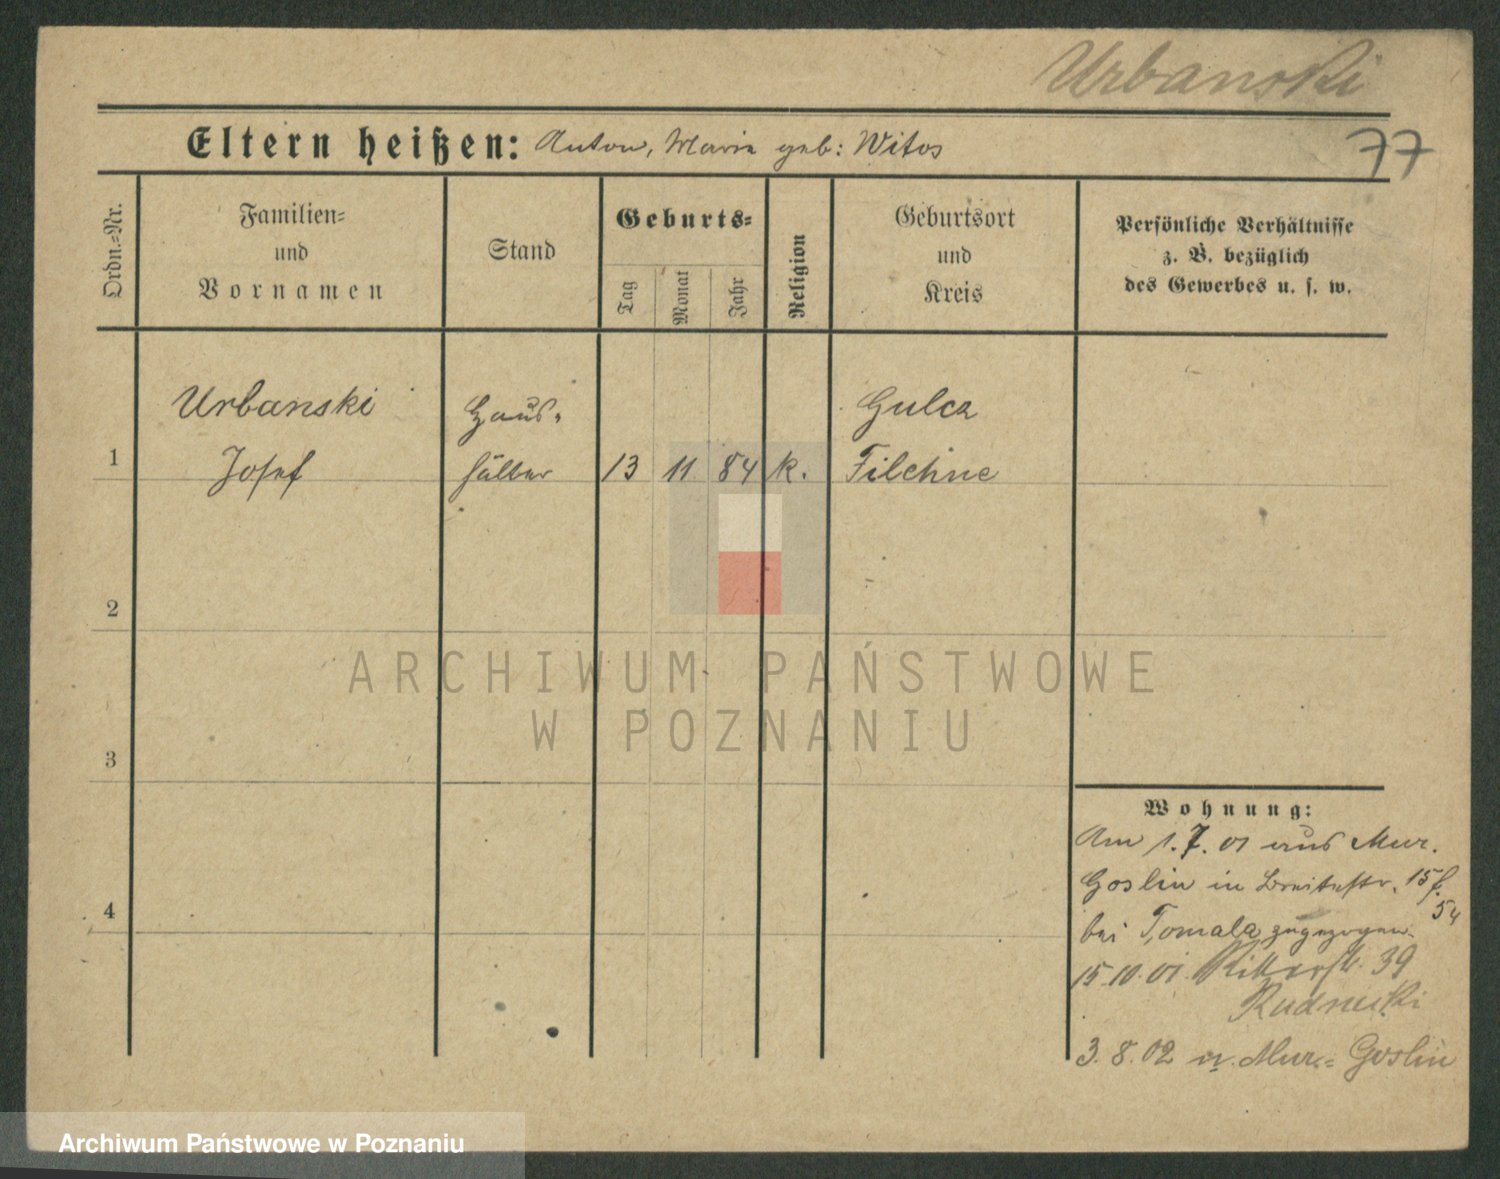 Urbanski
77
Eltern heißen: Anton, Maria geb: Witos
Ordn.-Nr.
Familien-
und
Vornamen
Stand
Geburts-
Tag
Monat
Jahr
Religion
Geburtsort
und
Kreis
Persönliche Verhältnisse
z. B. bezüglich
des Gewerbes u. s. w.
Urbanski
Haus-
Gulcz
1
Josef
hälter
13
11
84
k.
Filehne
2
ARCHIWUM PAŃSTWOWE
W POZNANIU
3
Wohnung:
Am 1.7.01 aus Mur.
Goslin in Breitestr. 15 f.
54
4
bei Tomala zugezogen.
15.10.01. Ritterstr. 39
3.8.02 n. Mur.-Goslin
Archiwum Państwowe w Poznaniu